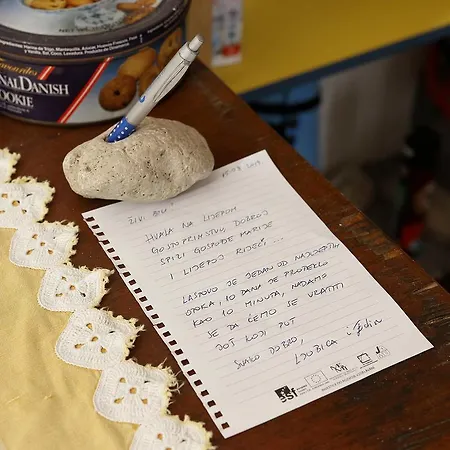 NAL DANISH
OOKIE
15.08.2019
ŽIVI BILI
HVALA NA LIJEPOM
GOSTOPRIMSTVU, DOBROJ
SPIZI GOSPOĐE MARIJE
I LIJEPOJ RIJEČI...
LASTOVO JE JEDAN OD NAJLJEPŠIH
OTOKA, 10 DANA JE PROTEKLO
KAO 10 MINUTA, NADAMO
SE DA ĆEMO SE VRATITI
JOŠ KOJI PUT
SVAKO DOBRO,
LJUBICA i Edin
esf